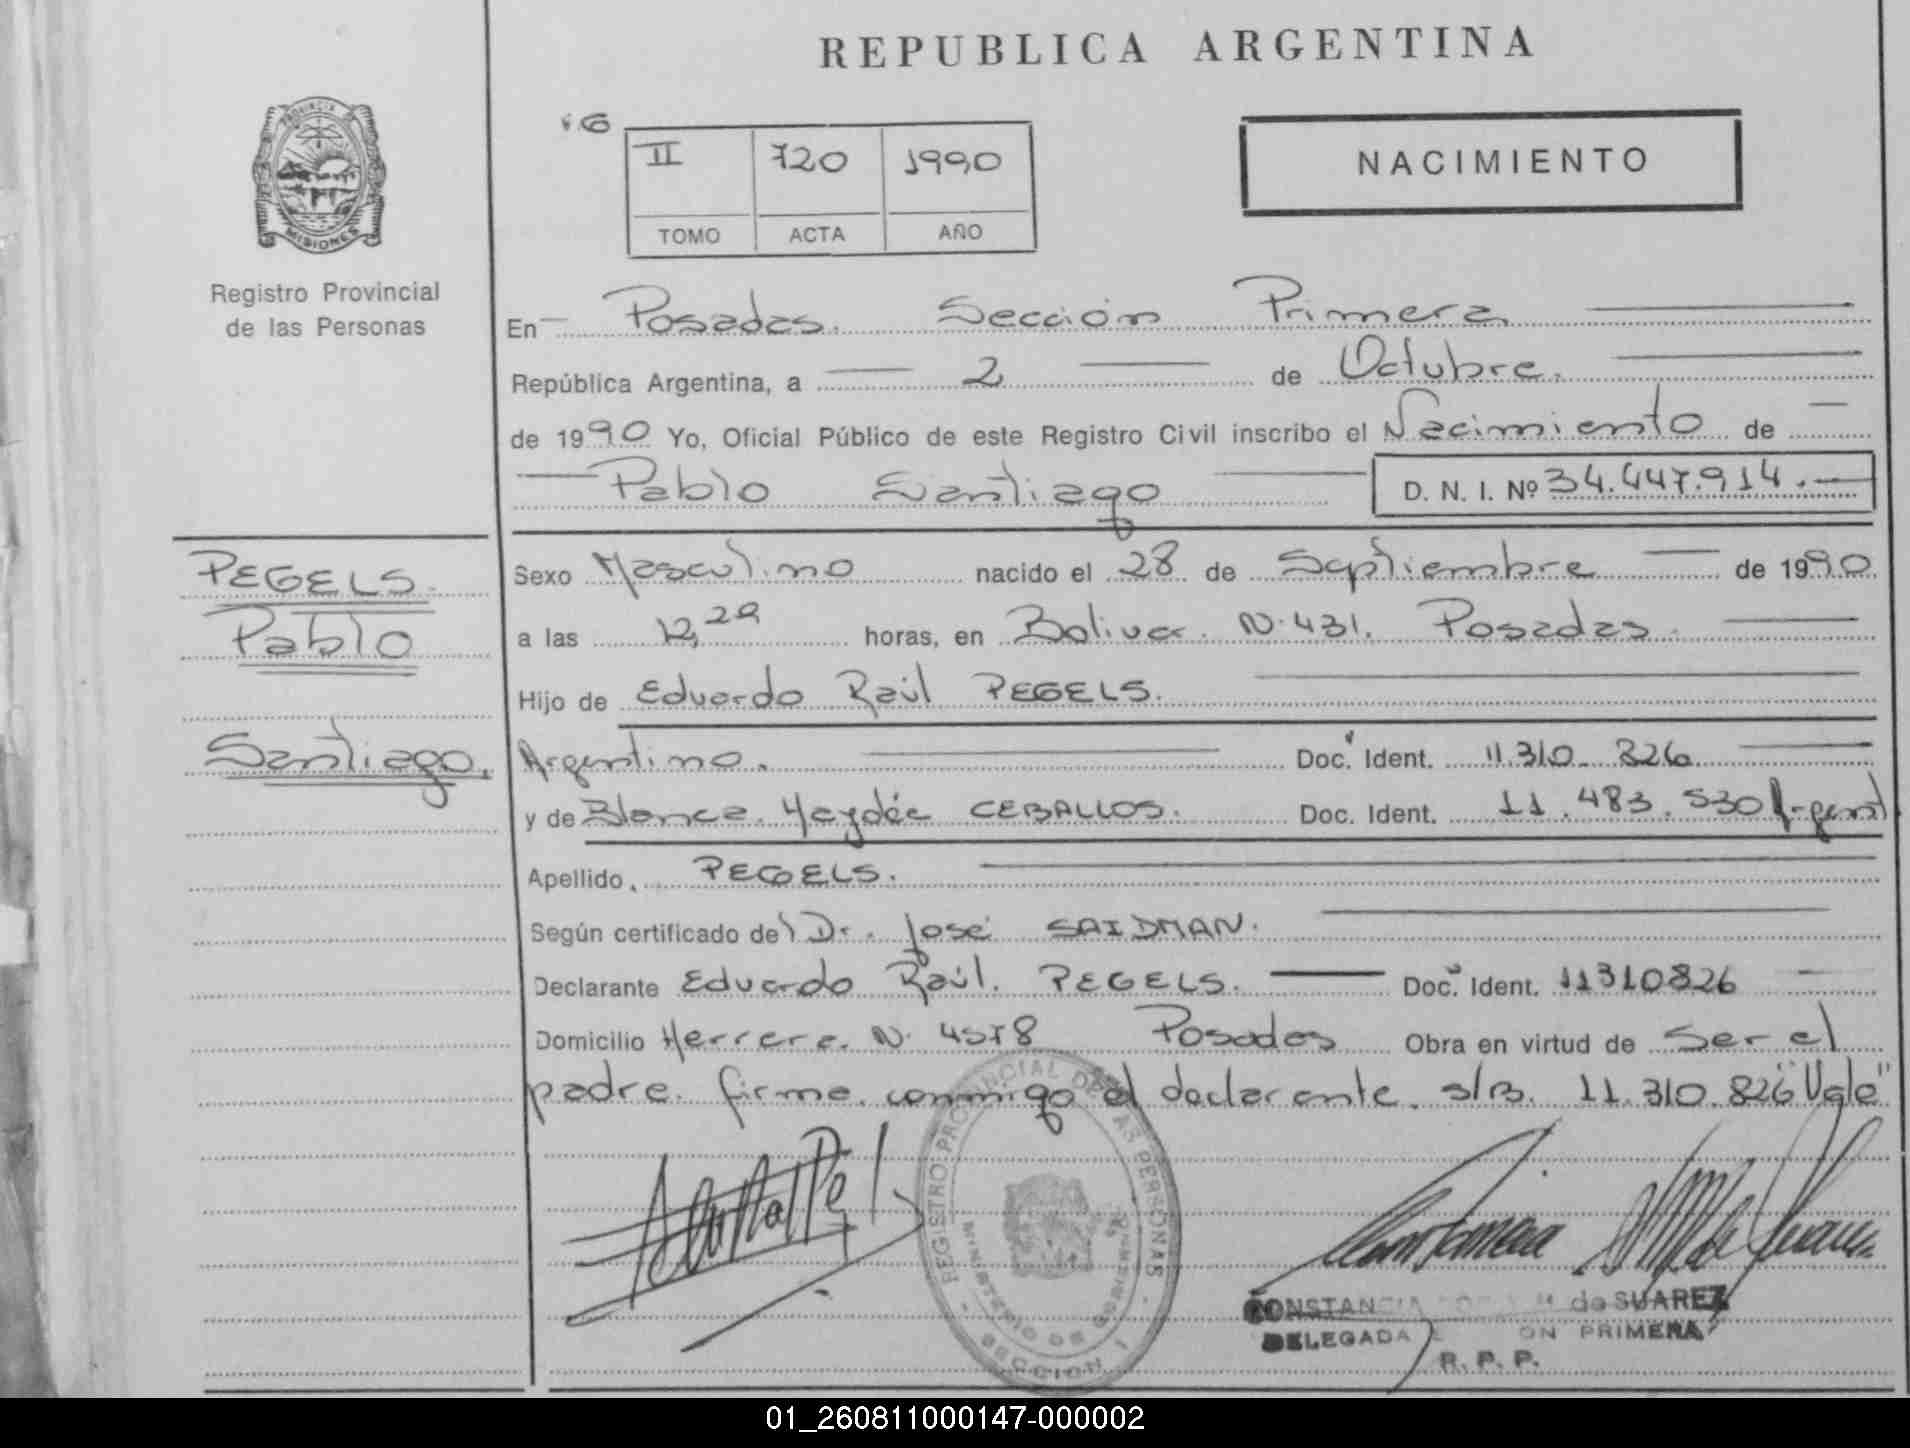 REPUBLICA ARGENTINA
PROVINCIA
MISIONES
Registro Provincial
de las Personas
II 720 1990
TOMO ACTA AÑO
NACIMIENTO
En Posadas. Sección Primera
República Argentina, a 2 de Octubre.
de 1990 Yo, Oficial Público de este Registro Civil inscribo el Nacimiento de
Pablo Santiago D. N. I. Nº 34.447.914.
PEGELS.
Pablo
Santiago.
Sexo Masculino nacido el 28 de Septiembre de 1990
a las 12,20 horas, en Bolivar. N. 431. Posadas.
Hijo de Eduardo Raúl PEGELS.
Argentino. Doc. Ident. 11.310.826
y de Blanca Haydée CEBALLOS. Doc. Ident. 11.483.530 Argent.
Apellido. PEGELS.
Según certificado del Dr. José SAIDMAN.
Declarante Eduardo Raúl. PEGELS. Doc. Ident. 11310826
Domicilio Herrera. N. 4578 Posadas Obra en virtud de Ser el
padre. firma conmigo el declarante. s/B. 11.310.826 "Vale"
REGISTRO PROVINCIAL DE LAS PERSONAS
MINISTERIO DE GOBIERNO
SECCION 1
CONSTANCIA de SUAREZ
DELEGADA PRIMERA
R. P. P.
01_260811000147-000002